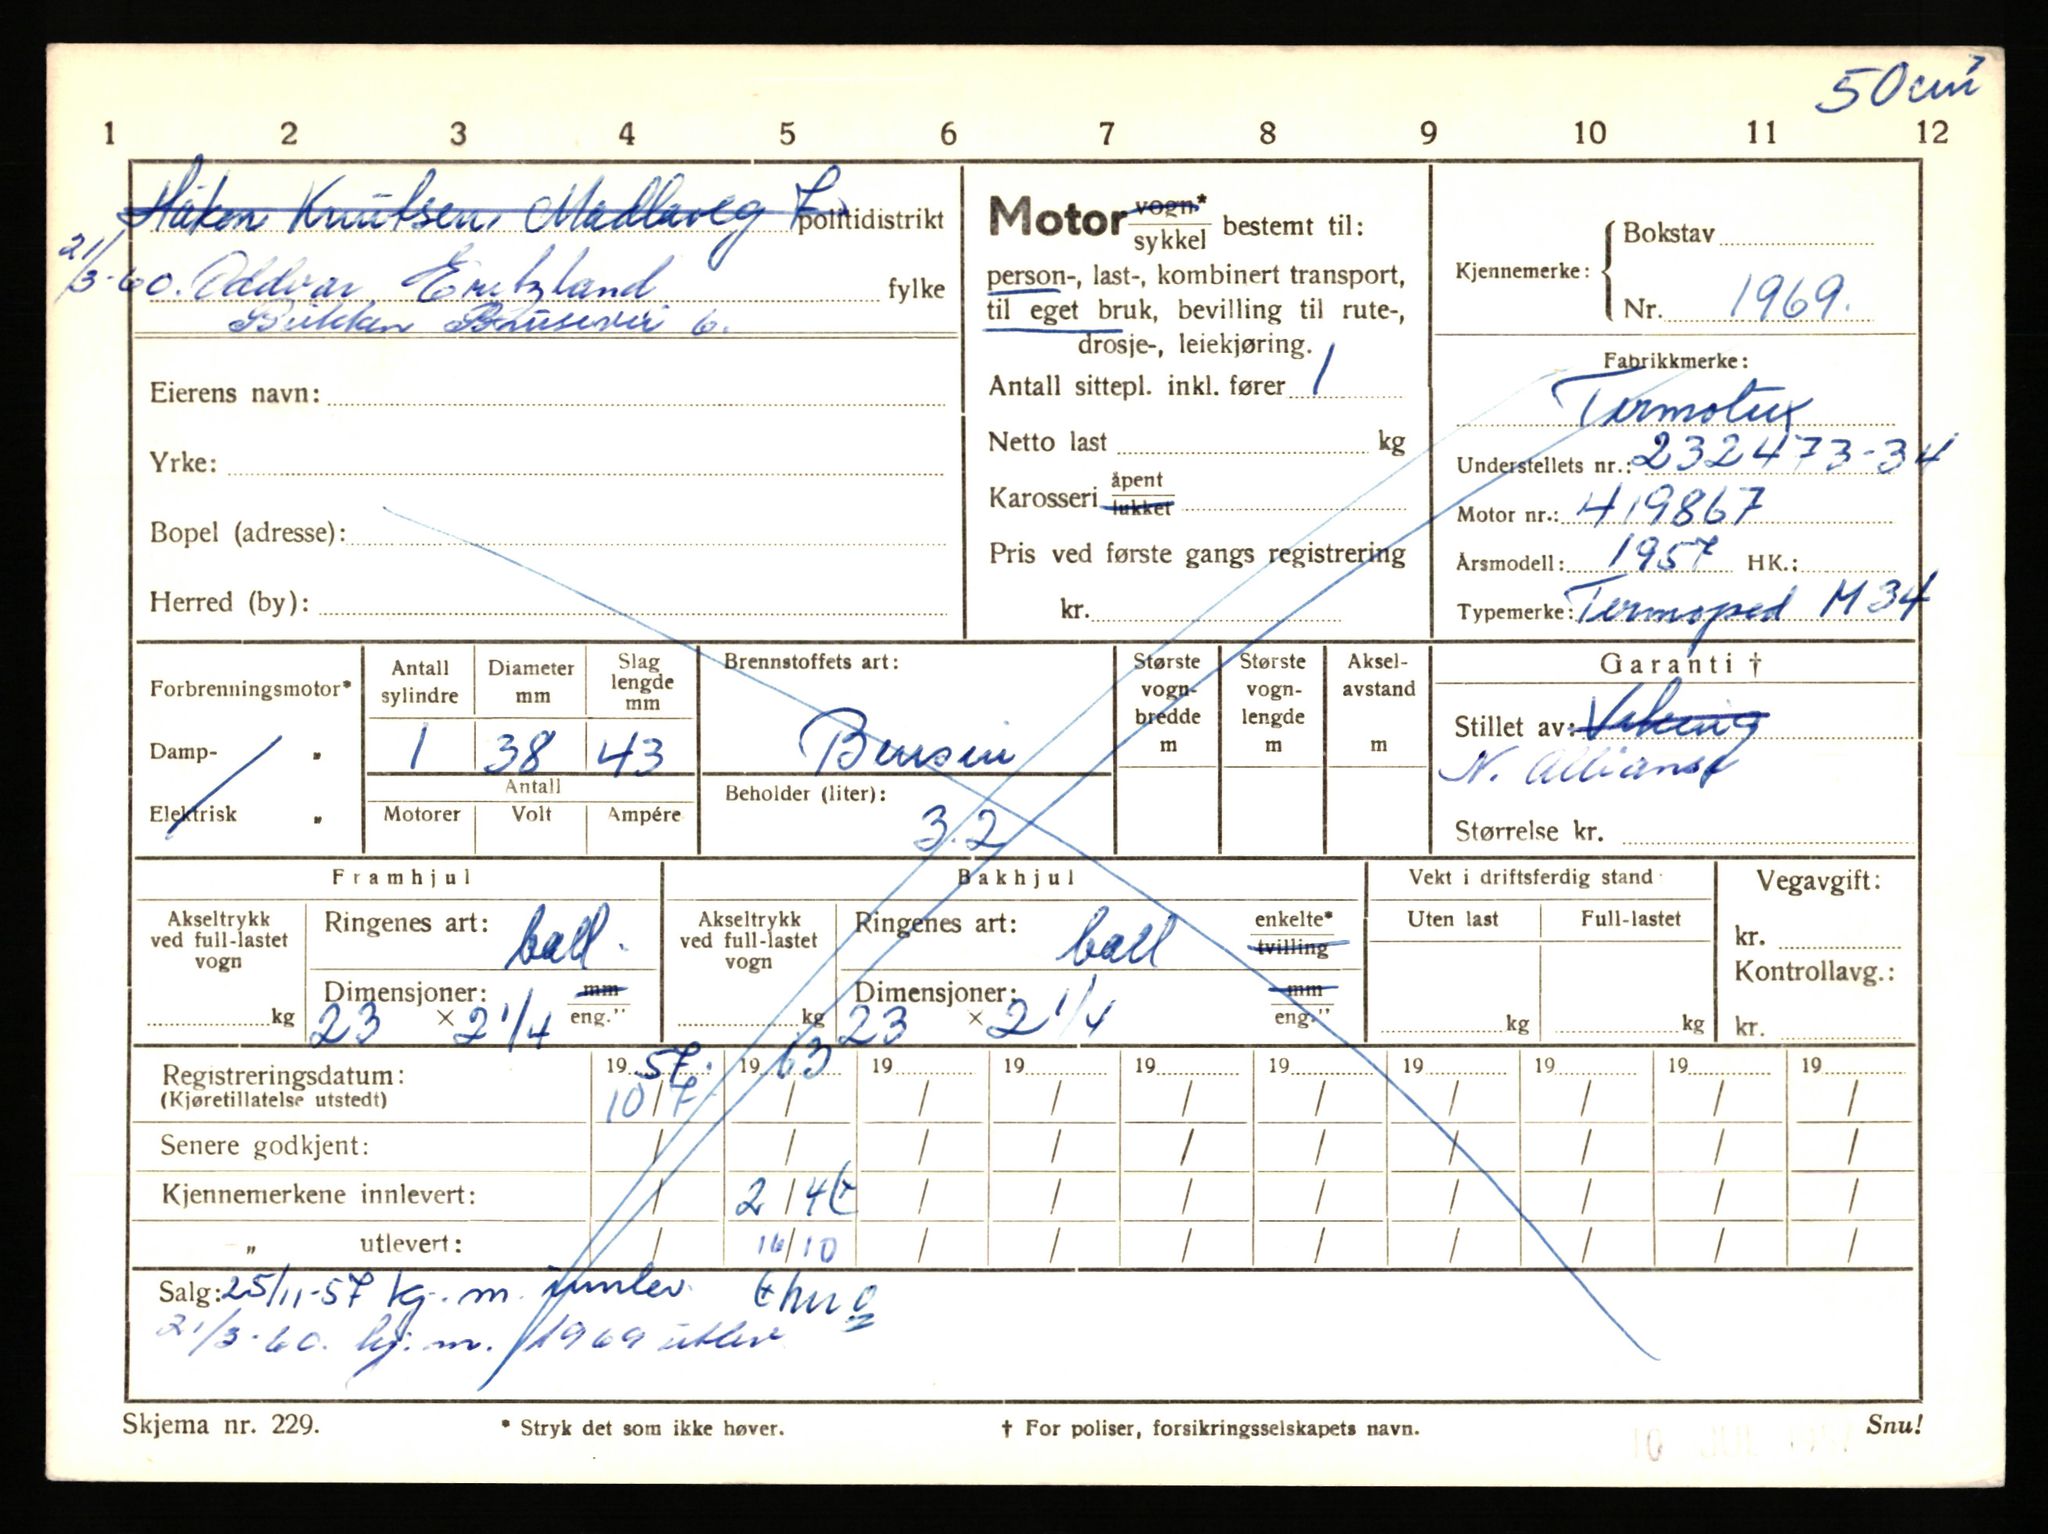 50 cm³
1 2 3 4 5 6 7 8 9 10 11 12
Håkon Knutsen, Madlaveg 7. politidistrikt
21/3-60. Oddvar fylke
6.
Eierens navn:
Yrke:
Bopel (adresse):
Herred (by):
Motor vogn* sykkel bestemt til:
person-, last-, kombinert transport,
til eget bruk, bevilling til rute-,
drosje-, leiekjøring.
Antall sittepl. inkl. fører 1
Netto last kg
Karosseri åpent lukket
Pris ved første gangs registrering
kr.
Kjennemerke: Bokstav
Nr. 1969.
Fabrikkmerke:
Termolux
Understellets nr.: 232473-34
Motor nr.: 419867
Årsmodell: 1957 HK.:
Typemerke: Termoped M 34
Forbrenningsmotor*
Damp- „
Elektrisk „
Antall sylindre Diameter mm Slag lengde mm
1 38 43
Antall
Motorer Volt Ampére
Brennstoffets art:
Bensin
Beholder (liter):
3.2
Største vogn-bredde m
Største vogn-lengde m
Aksel-avstand m
Garanti †
Stillet av: Viking
N. Allianse
Størrelse kr.
Framhjul
Akseltrykk ved full-lastet vogn
kg
Ringenes art: ball.
Dimensjoner: mm
23 × 2 1/4 eng."
Bakhjul
Akseltrykk ved full-lastet vogn
kg
Ringenes art: ball enkelte* tvilling
Dimensjoner: mm
23 × 2 1/4 eng."
Vekt i driftsferdig stand
Uten last Full-lastet
kg kg
Vegavgift:
kr.
Kontrollavg.:
kr.
Registreringsdatum: 1957. 1963 19 19 19 19 19 19 19 19
(Kjøretillatelse utstedt) 10/7 / / / / / / / / /
Senere godkjent: / / / / / / / / / /
Kjennemerkene innlevert: / 2/4 / / / / / / / /
„ utlevert: / 16/10 / / / / / / / /
Salg: 25/11-57 kj. m. innlev.
21/3-60. kj. m. 1969 utlev
Skjema nr. 229.
* Stryk det som ikke høver.
† For poliser, forsikringsselskapets navn.
Snu!
10 JUL 1957